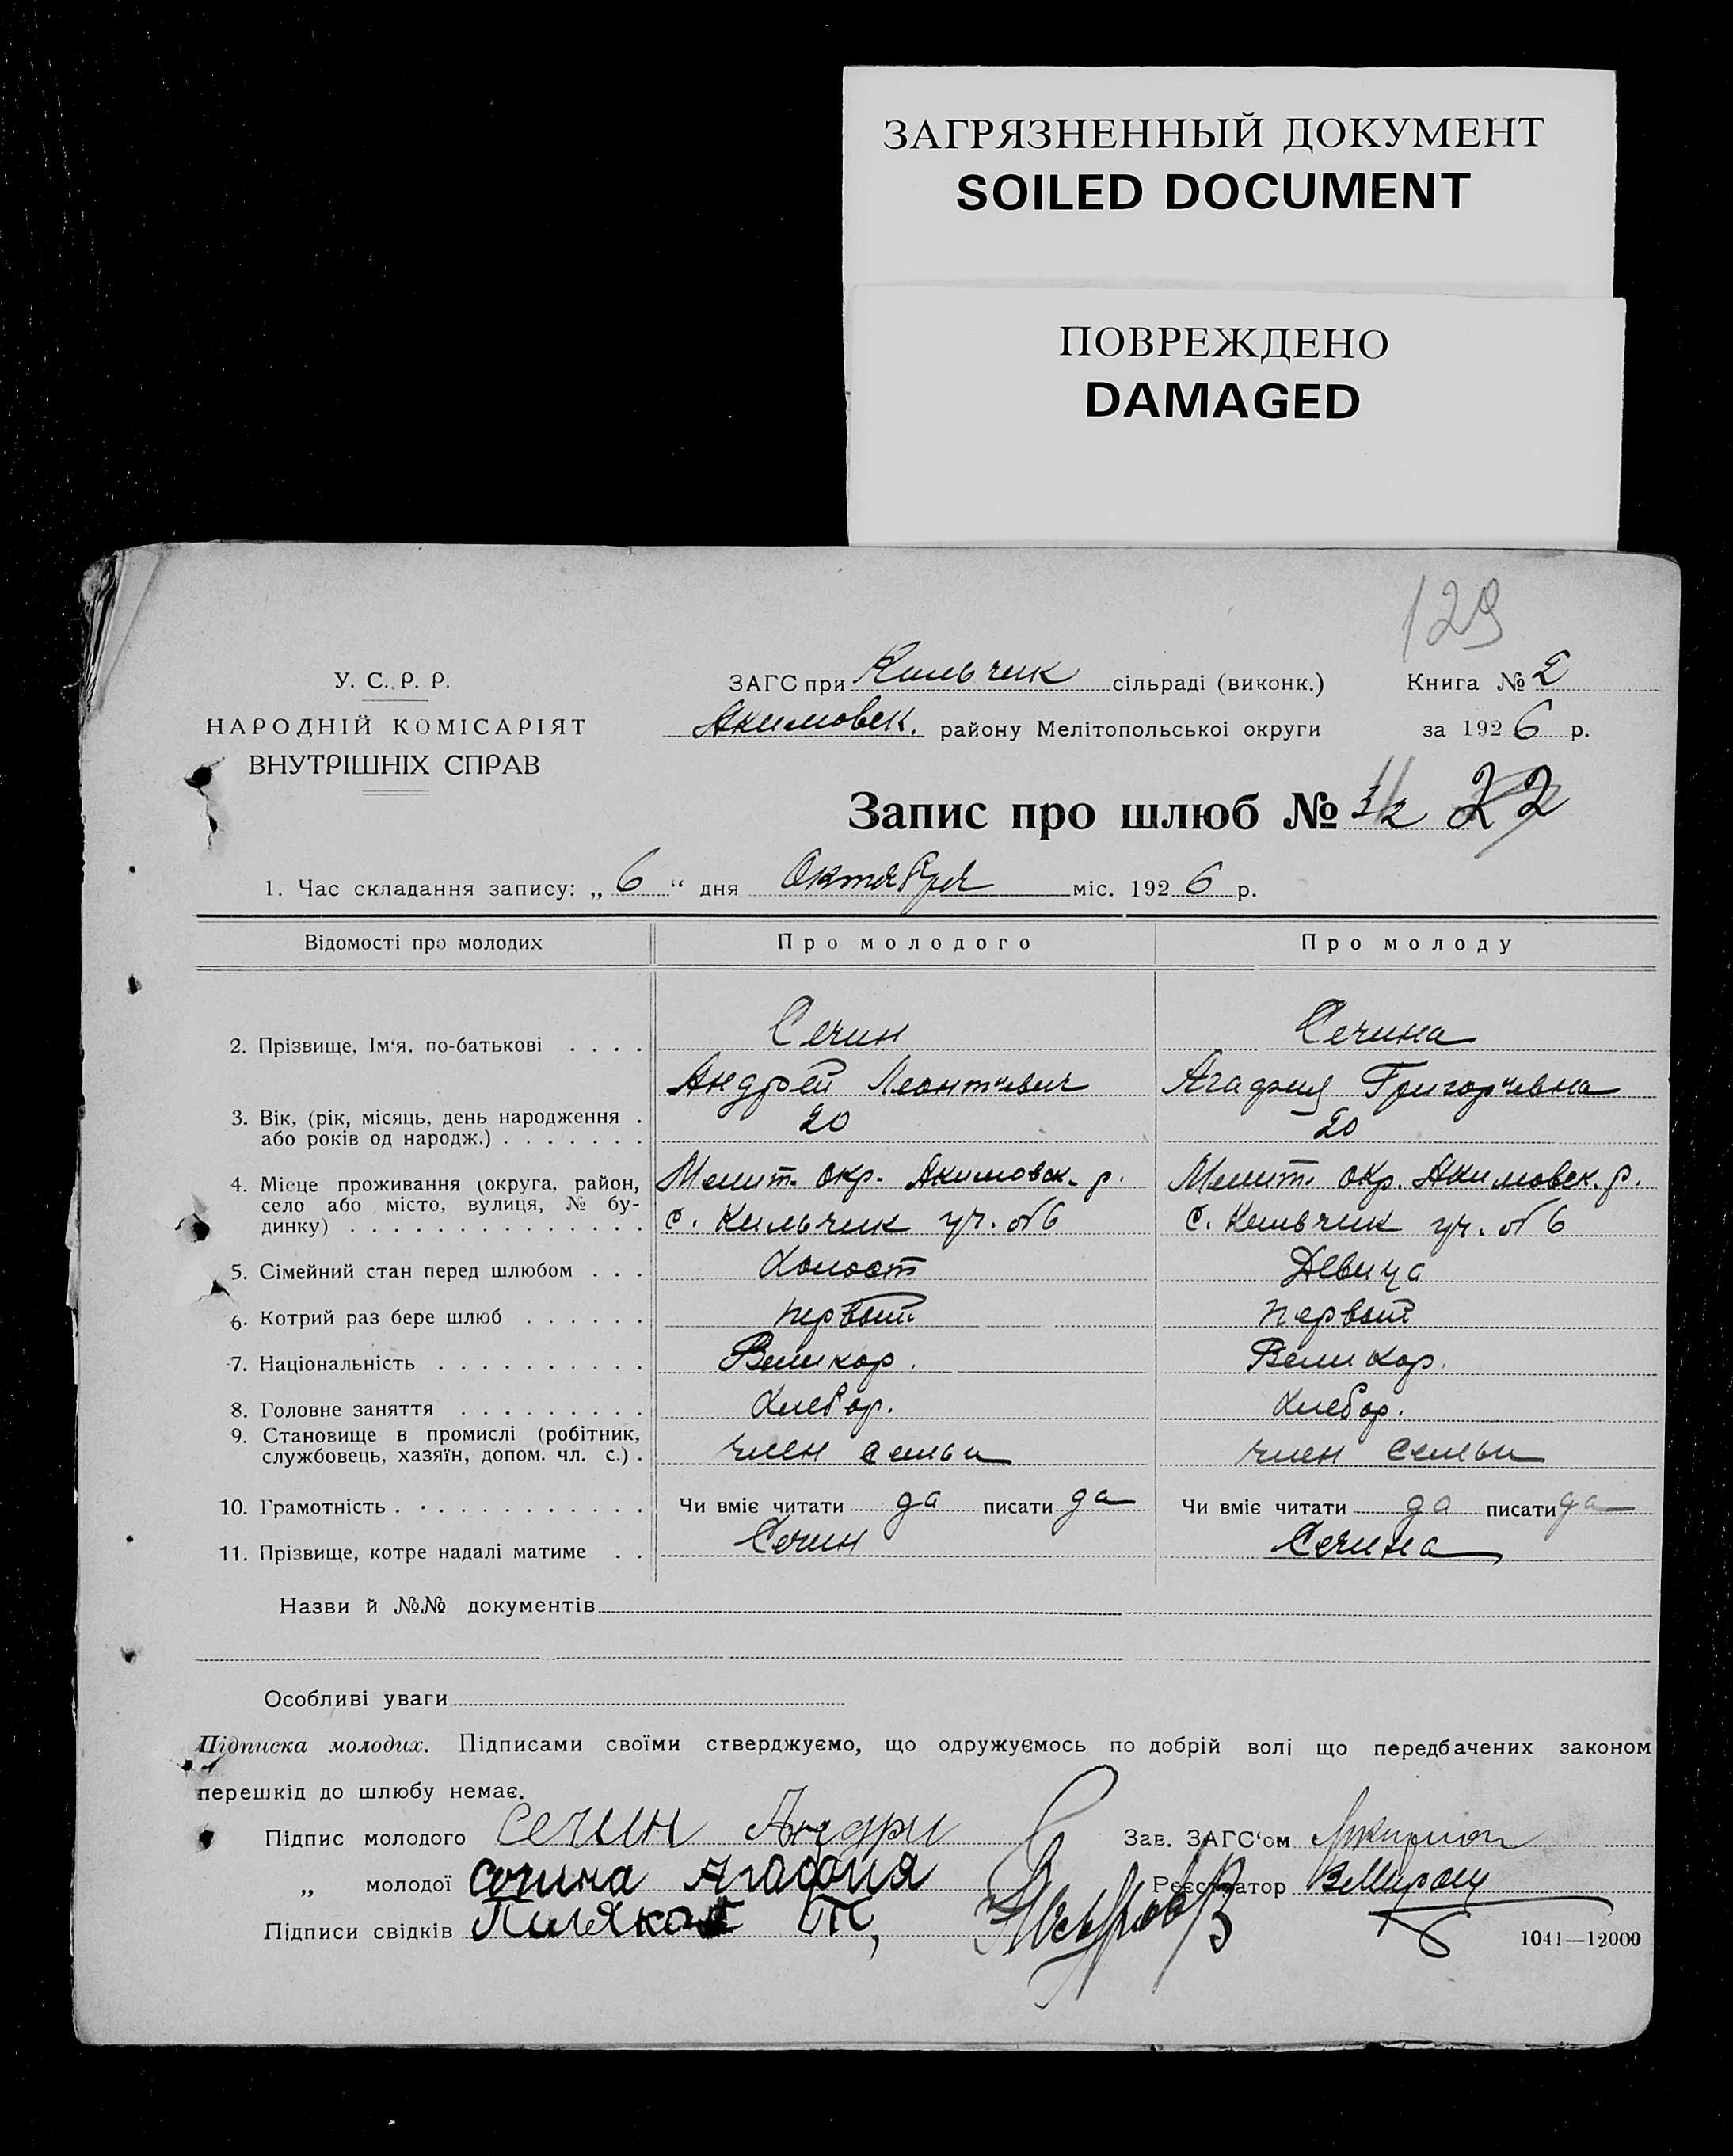 ЗАГРЯЗНЕННЫЙ ДОКУМЕНТ
SOILED DOCUMENT
ПОВРЕЖДЕНО
DAMAGED
129
У. С. Р. Р.
НАРОДНІЙ КОМІСАРІЯТ
ВНУТРІШНІХ СПРАВ
ЗАГС при Кильчик сільраді (виконк.)
Акимовск. району Мелітопольськоі округи
Книга № 2
за 1926 р.
Запис про шлюб № 22
1. Час складання запису: „ 6 “ дня Октября міс. 1926 р.
Відомості про молодих Про молодого Про молоду
2. Прізвище, Ім‘я, по-батькові . . . . Сечин Сечина
Андрей Леонтьевич Агафия Григорьевна
3. Вік, (рік, місяць, день народження .
або років од народж.) . . . . . . . 20 20
4. Місце проживання (округа, район, Мелит. окр. Акимовск. р. Мелит. окр. Акимовск. р.
село або місто, вулиця, № бу-
динку) . . . . . . . . . . . . . . с. Кильчик уч. № 6 с. Кильчик уч. № 6
5. Сімейний стан перед шлюбом . . . Холост Девица
6. Котрий раз бере шлюб . . . . . . первый первый
7. Національність . . . . . . . . . . Великор. Великор.
8. Головне заняття . . . . . . . . . Хлебор. Хлебор.
9. Становище в промислі (робітник,
службовець, хазяїн, допом. чл. с.) . член семьи член семьи
10. Грамотність . . . . . . . . . . . . Чи вміє читати да писати да Чи вміє читати да писати да
11. Прізвище, котре надалі матиме . . Сечин Сечина
Назви й №№ документів
Особливі уваги
Підписка молодих. Підписами своїми стверджуємо, що одружуємось по добрій волі що передбачених законом
перешкід до шлюбу немає.
Підпис молодого Сечин Андри Зав. ЗАГС‘ом
„ молодої Сечина Агафия Реєстратор
Підписи свідків
1041—12000